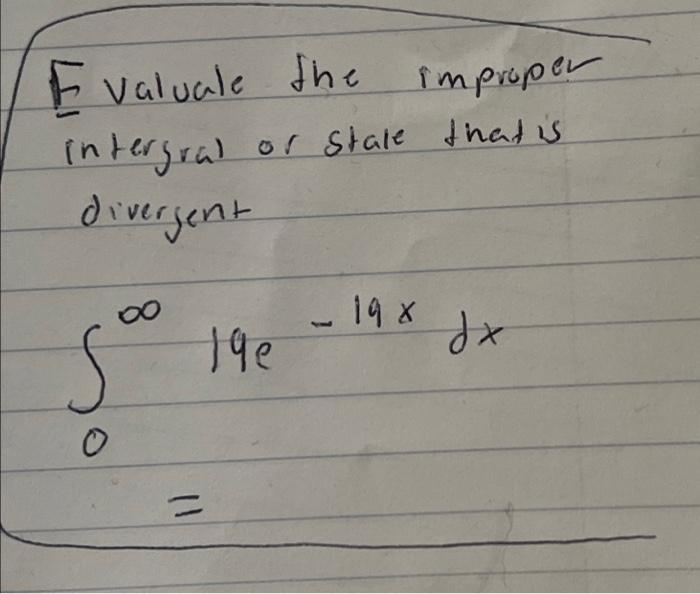 Evaluate the improper
intergral or state that is
divergent
∞
∫ 19e^{-19x} dx
0
=